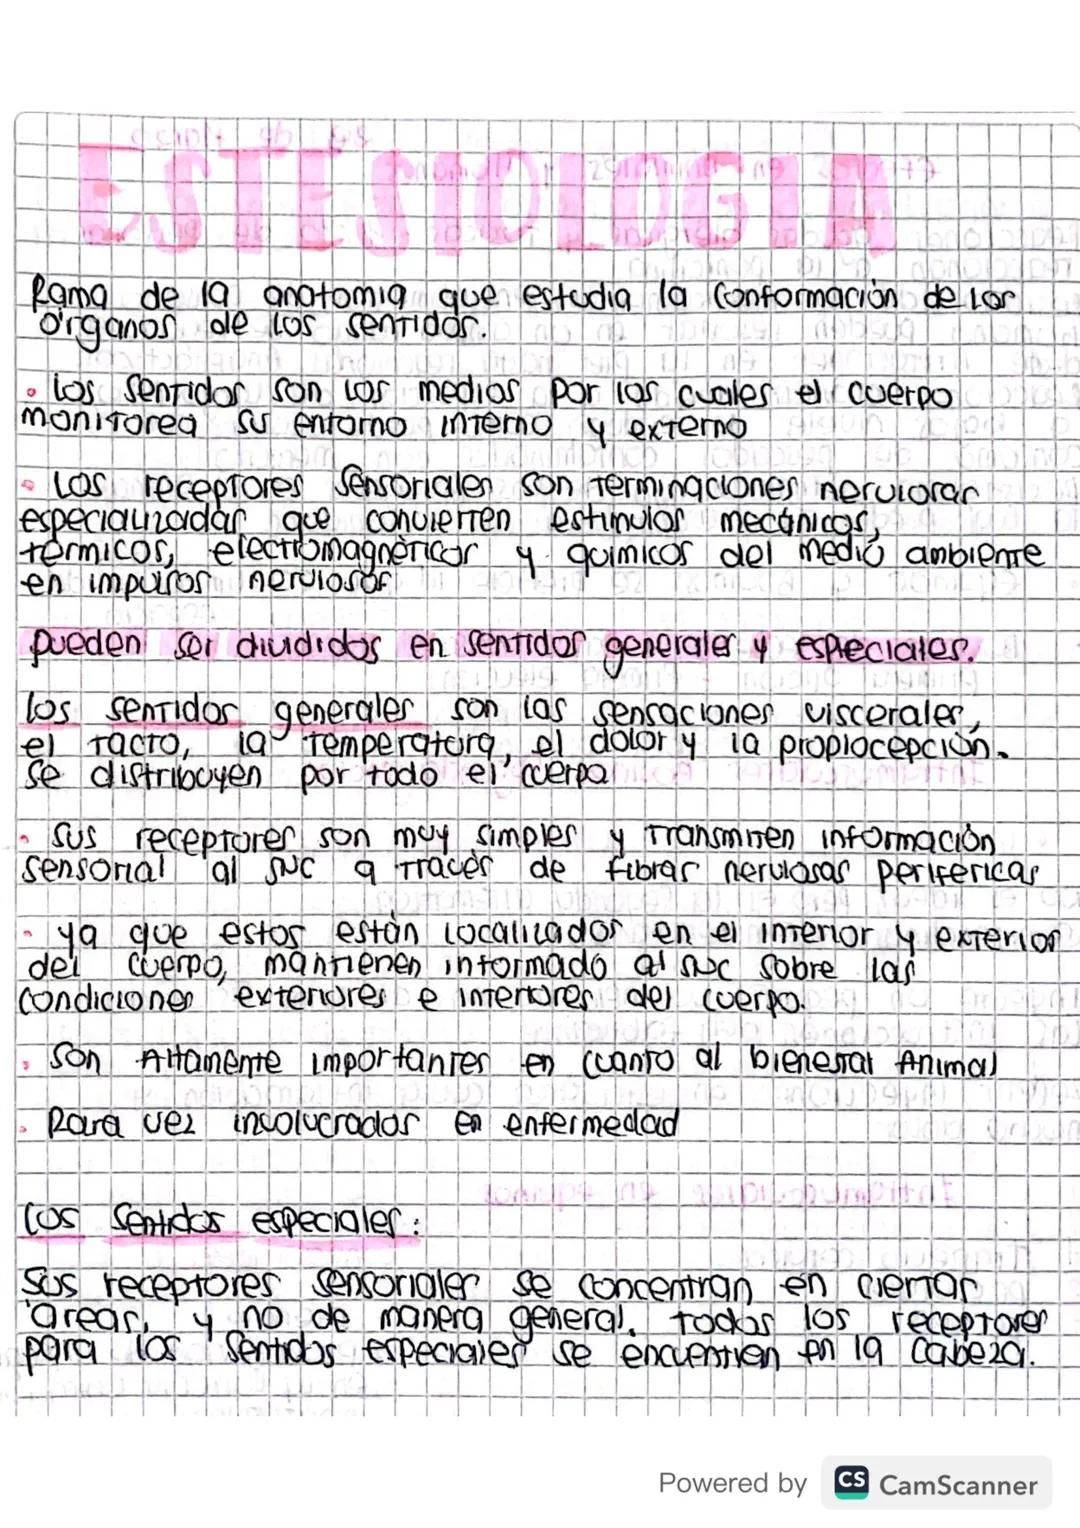 ESTESIOLOGIA
Rama de la anatomia que estudia la conformación de los
órganos de los sentidos.
• Los sentidos son los medios por los cuales el cuerpo
monitorea su entorno interno y externo
• Los receptores sensoriales son terminaciones nerviosas
especializadas que convierten estimulos mecánicos,
térmicos, electromagnéticos y quimicos del medio ambiente
en impulsos nerviosos
pueden ser divididos en sentidos generales y especiales.
los sentidos generales son las sensaciones viscerales,
el tacto, la temperatura, el dolor y la propiocepción.
Se distribuyen por todo el cuerpo
• Sus receptores son muy simples y transmiten información
sensorial al SNC a través de fibras nerviosas perifericas
• ya que estos están localizados en el interior y exterior
del cuerpo, mantienen informado al SNC sobre las
condiciones exteriores e interiores del cuerpo.
• Son Altamente importantes en cuanto al bienestar Animal
• Rara vez incolucrados en enfermedad
Los Sentidos especiales:
Sus receptores sensoriales se concentran en ciertas
áreas, y no de manera general. todos los receptores
para los sentidos especiales se encuentren en la cabeza.
Powered by CS CamScanner